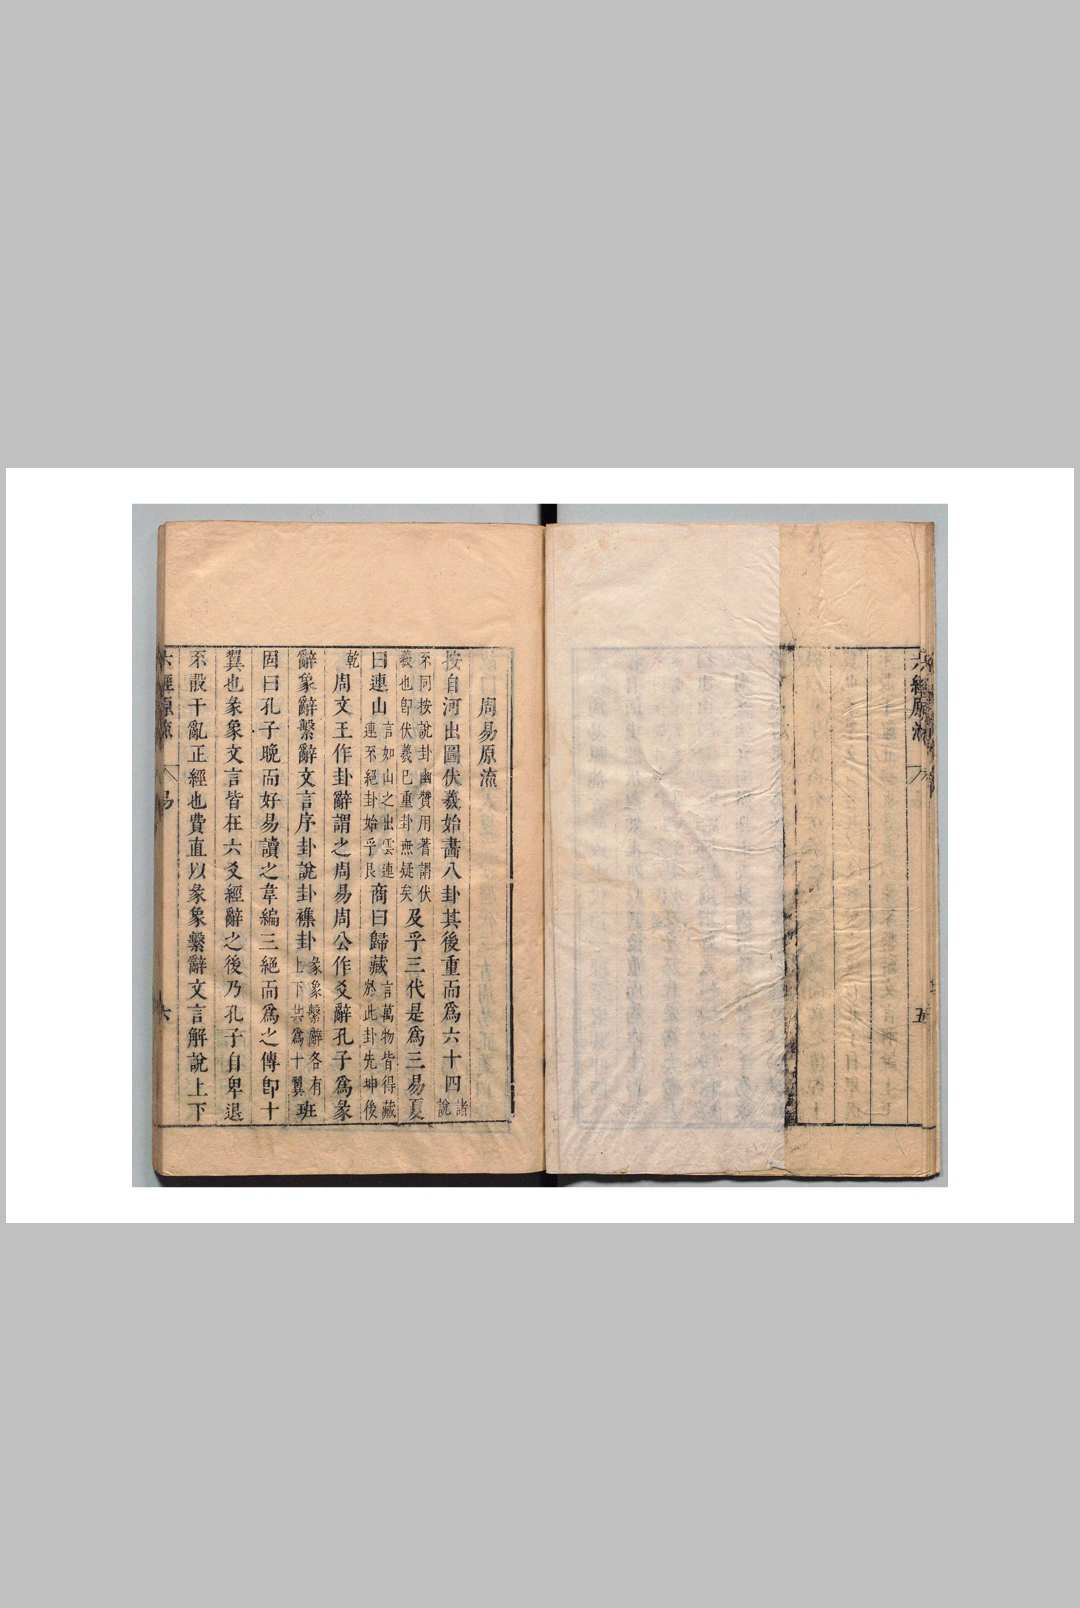 六經原流
五
周易原流
按自河出圖伏羲始畫八卦其後重而為六十四諸說
不同按說卦幽贊用蓍謂伏羲也即伏羲已重卦無疑矣及乎三代是為三易夏
曰連山言如山之出雲連連不絕卦始乎艮商曰歸藏言萬物皆得藏於此卦先坤後
乾周文王作卦辭謂之周易周公作爻辭孔子為彖
辭象辭繫辭文言序卦說卦襍卦彖象繫辭各有上下共為十翼班
固曰孔子晚而好易讀之韋編三絕而為之傳即十
翼也彖象文言皆在六爻經辭之後乃孔子自卑退
不敢干亂正經也費直以彖象繫辭文言解說上下
六經原流
易
六